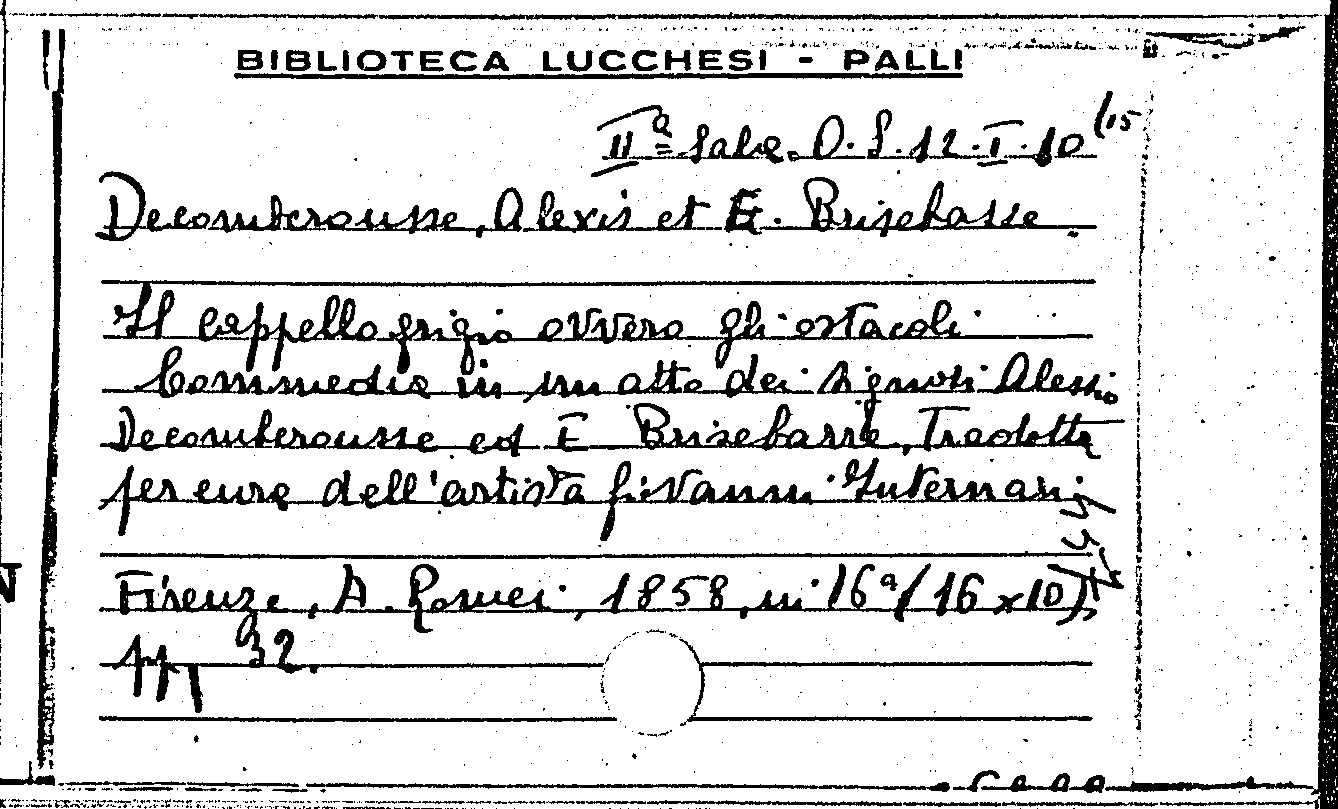 BIBLIOTECA LUCCHESI - PALLI
IIª Sala. O. S. 12. I. 10 (15
Decomberousse, Alexis et E. Brisebasse.
Il cappello grigio ovvero gli ostacoli
Commedia in un atto dei signori Alessio
Decomberousse ed E Brisebarre, Tradotta
per cura dell'artista Giovanni Internari
Firenze, A. Romei, 1858, in 16ª (16 x 10),
pp 32.